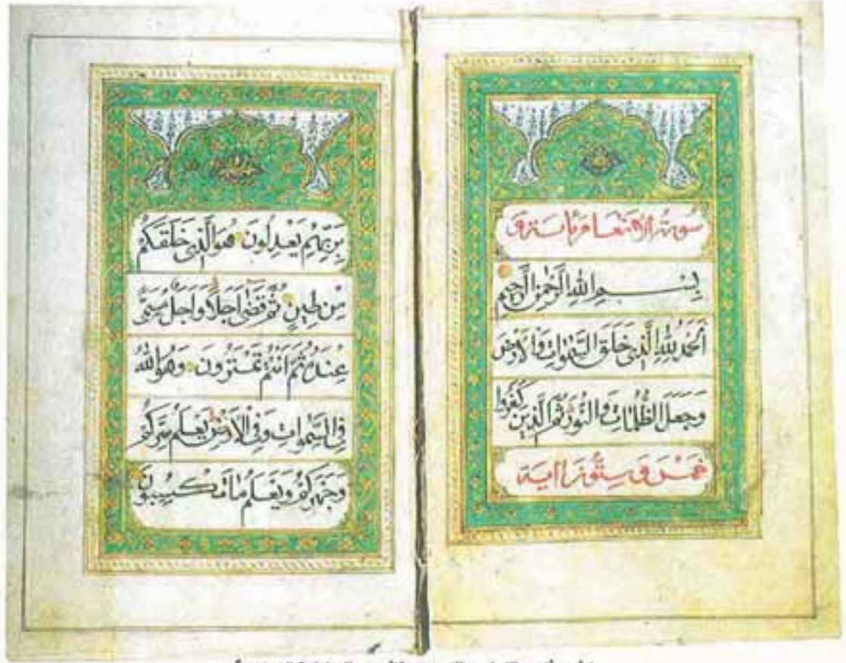 سورة الانعام مأية و
بسم الله الرحمن الرحيم
الحمد لله الذي خلق السموات والارض
وجعل الظلمات والنور ثم الذين كفروا
خمس و ستون اية
بربهم يعدلون هو الذي خلقكم
من طين ثم قضى اجلا واجل مسمى
عنده ثم انتم تمترون وهو الله
في السموات وفي الارض يعلم سركم
وجهركم ويعلم ما تكسبون